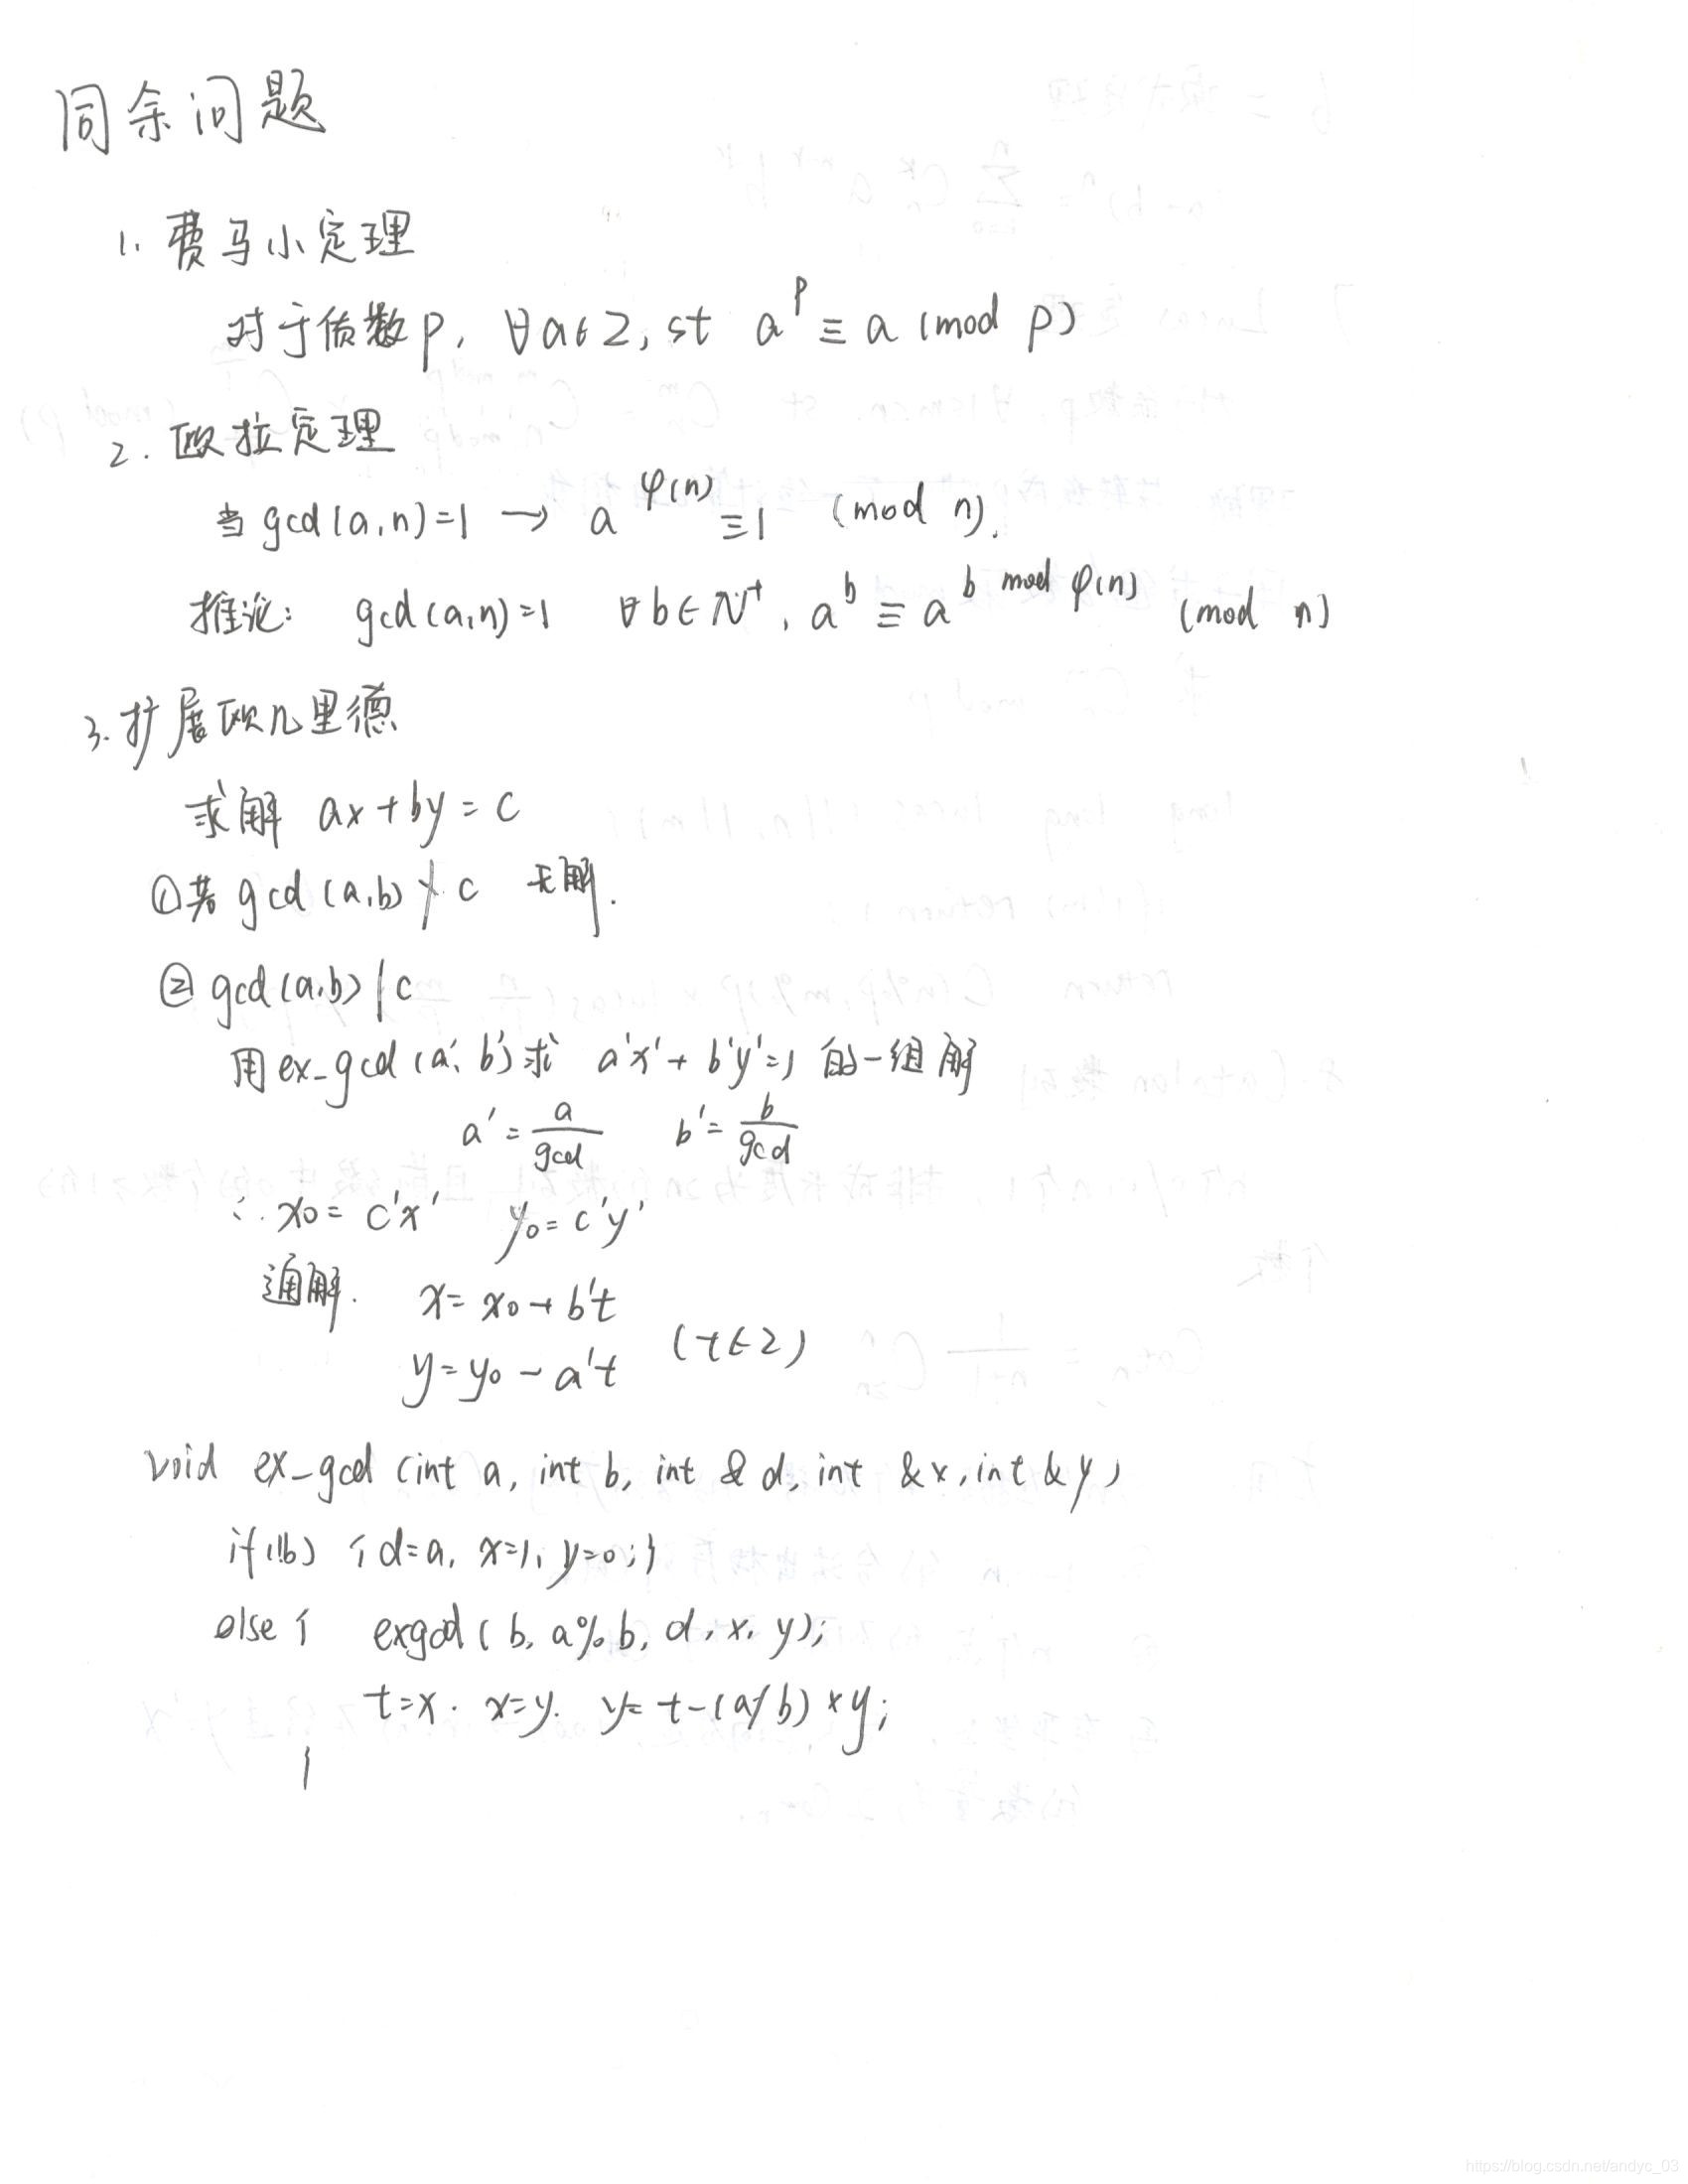 同余问题
1. 费马小定理
对于质数p, ∀a∈Z, st a^p ≡ a (mod p)
2. 欧拉定理
当 gcd(a,n)=1 → a^φ(n) ≡1 (mod n).
推论: gcd(a,n)=1 ∀b∈N⁺, a^b ≡ a^(b mod φ(n)) (mod n)
3. 扩展欧几里德
求解 ax+by=c
①若 gcd(a,b)∤c 无解.
② gcd(a,b)|c
用ex_gcd(a',b')求 a'x'+b'y'=1 的一组解
a'=a/gcd b'=b/gcd
∴ x0=c'x' y0=c'y'
通解. x=x0+b't
y=y0-a't (t∈Z)
void ex_gcd(int a, int b, int &d, int &x, int &y)
if(!b) {d=a, x=1, y=0;}
else { exgcd(b, a%b, d, x, y);
t=x. x=y. y=t-(a/b)×y;
}
https://blog.csdn.net/andyc_03